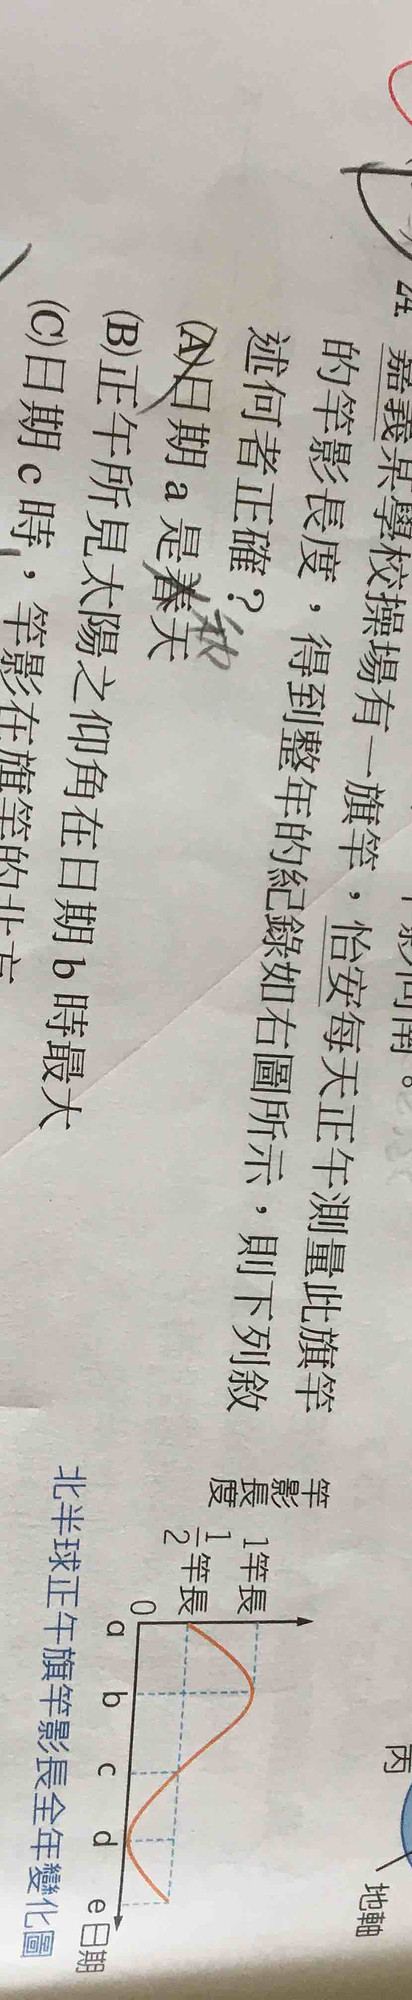 影向南。
24. 嘉義某學校操場有一旗竿，怡安每天正午測量此旗竿
的竿影長度，得到整年的紀錄如右圖所示，則下列敘
述何者正確？
(A)日期 a 是春天
秋
(B)正午所見太陽之仰角在日期 b 時最大
(C)日期 c 時，竿影在旗竿的北方
丙
地軸
竿影長度
1竿長
1/2竿長
0
a b c d e 日期
北半球正午旗竿影長全年變化圖